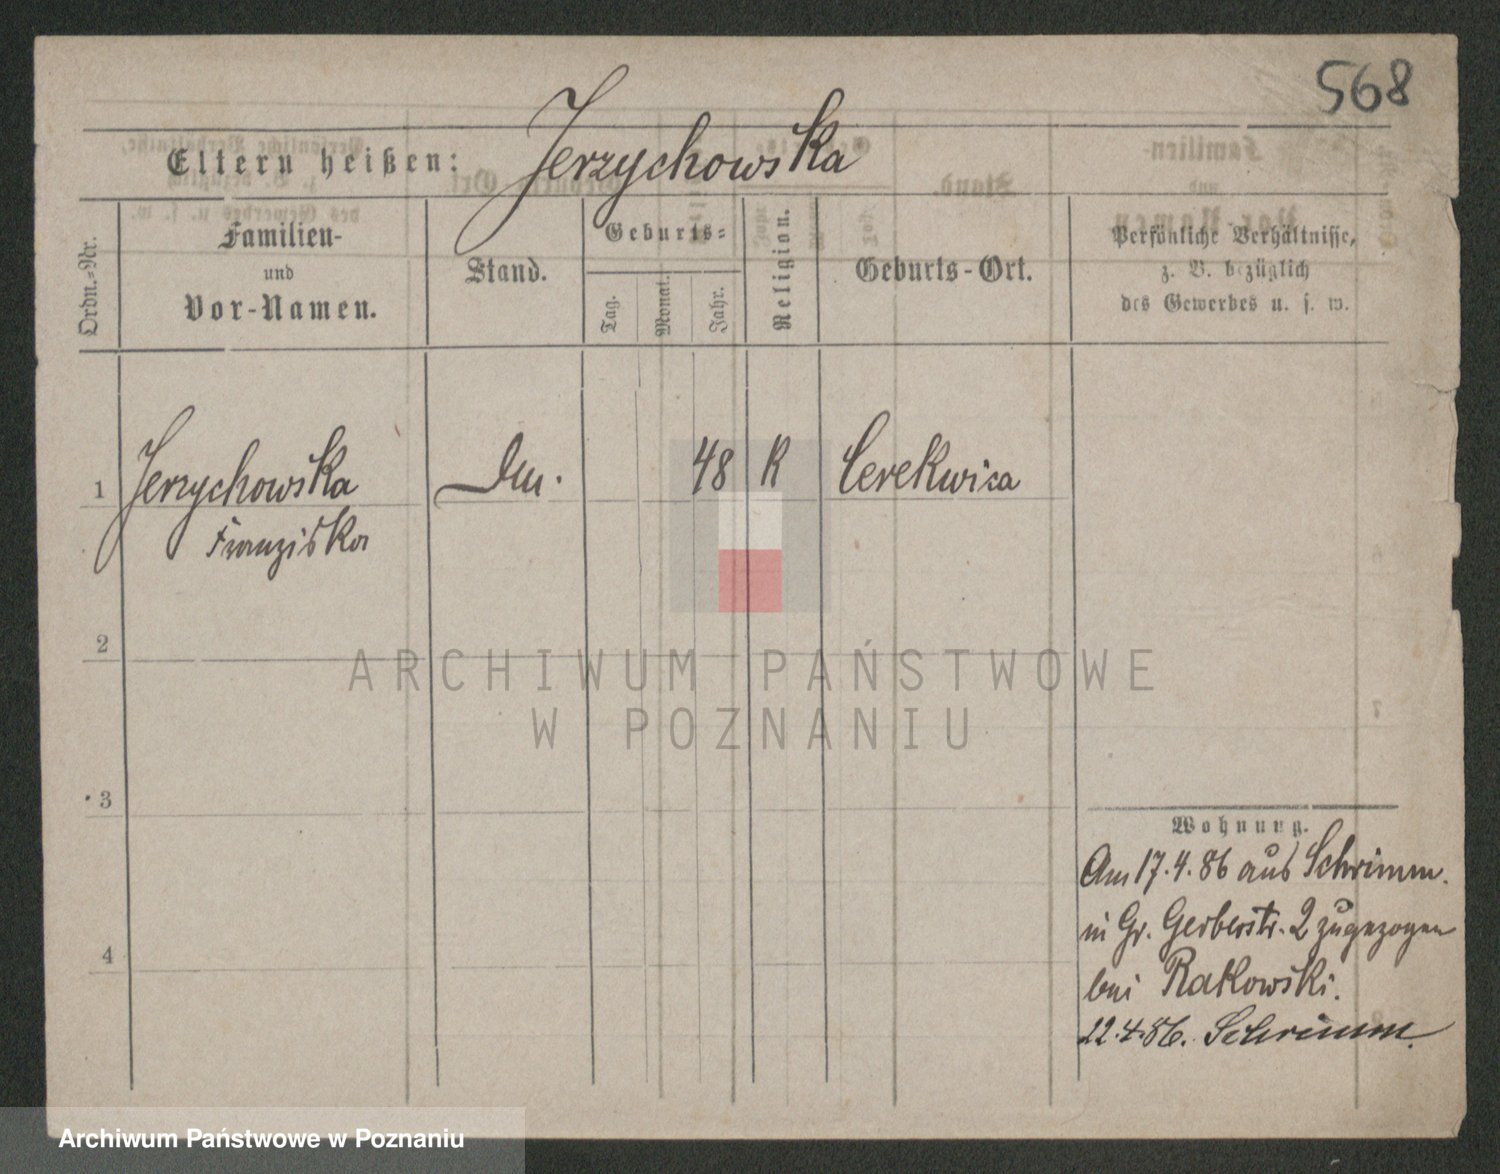 568
Eltern heißen: Jerzychowska
Ordn.-Nr.
Familien-
und
Vor-Namen.
Stand.
Geburts-
Tag.
Monat.
Jahr.
Religion.
Geburts-Ort.
Persönliche Verhältnisse,
z. B. bezüglich
des Gewerbes u. s. w.
1 Jerzychowska 48 K Cerekwica
Franziska
2
3
4
Wohnung.
Am 17.4.86 aus Schrimm.
in Gr. Gerberstr. 2 zugezogen
bei Ratkowski.
22.4.86. Schrimm.
ARCHIWUM PAŃSTWOWE
W POZNANIU
Archiwum Państwowe w Poznaniu